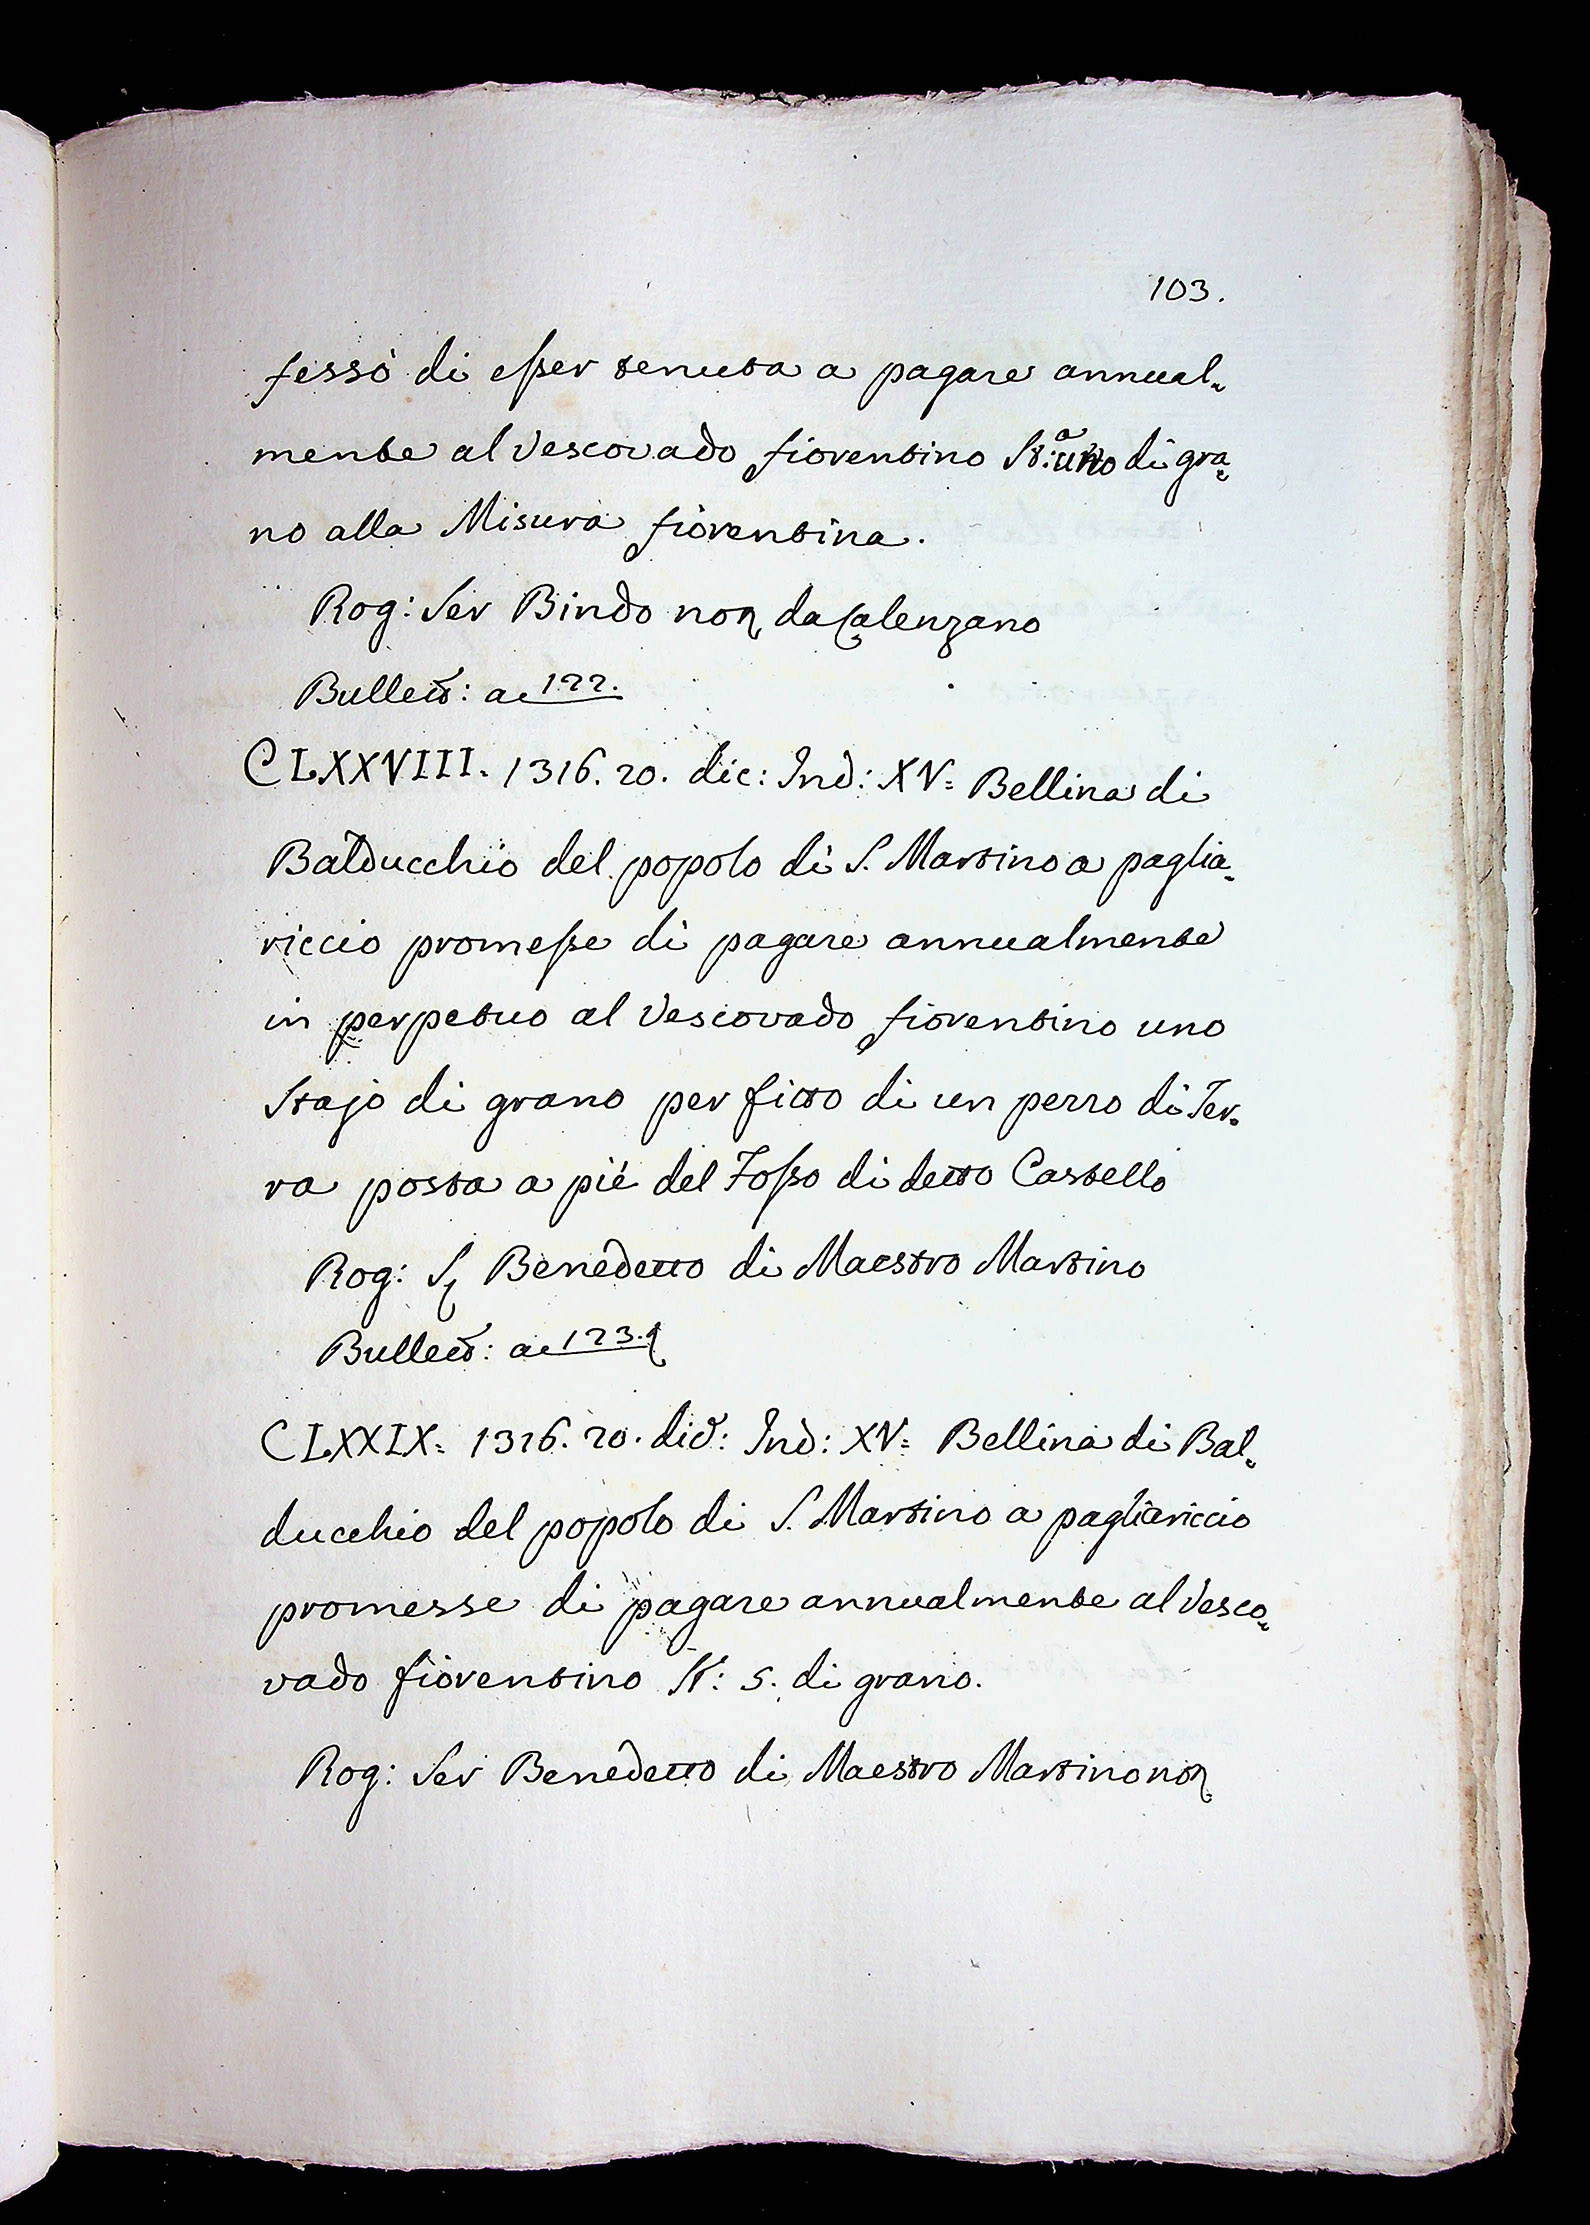 103.
fessò di esser tenuta a pagare annual-
mente al Vescovado fiorentino St:ª uno di gra-
no alla Misura fiorentina.
Rog: Ser Bindo no: da Calenzano
Bullett: a 122.
CLXXVIII. 1316. 20. dic: Ind: XV= Bellina di
Balducchio del popolo di S. Martino a paglia-
riccio promesse di pagare annualmente
in perpetuo al Vescovado fiorentino uno
Stajo di grano per fitto di un pezzo di Ter-
ra posta a piè del Fosso di detto Castello
Rog: S. Benedetto di Maestro Martino
Bullett: a 123.
CLXXIX= 1316. 20. dic: Ind: XV= Bellina di Bal-
ducchio del popolo di S. Martino a pagliariccio
promesse di pagare annualmente al Vesco-
vado fiorentino St: 5. di grano.
Rog: Ser Benedetto di Maestro Martino no: